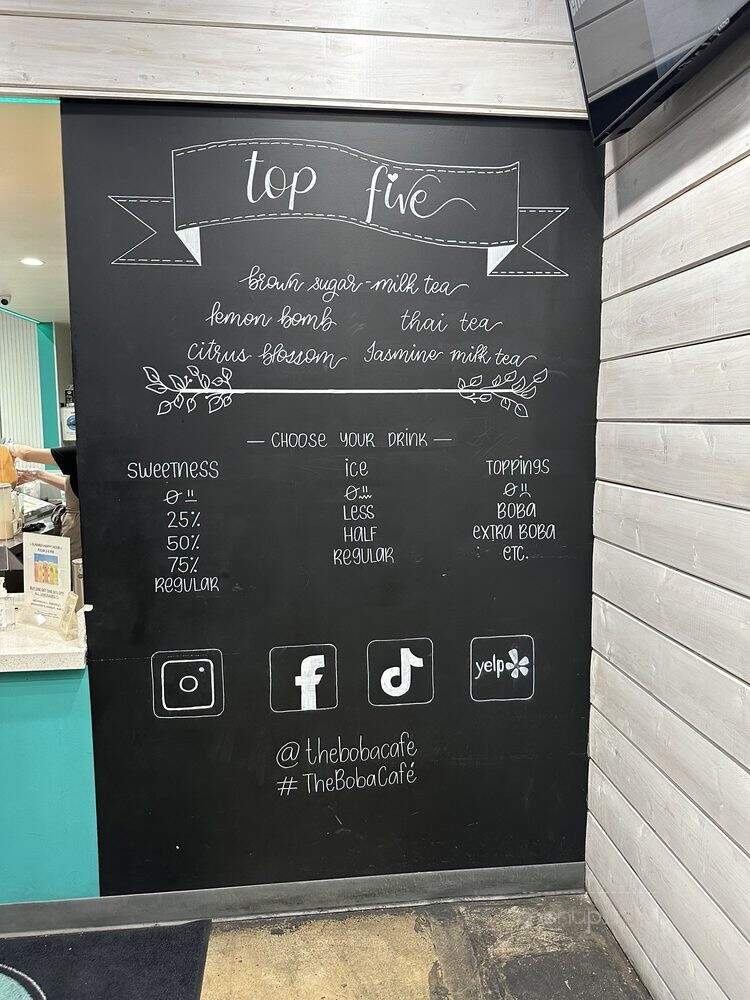 top five
brown sugar milk tea
lemon bomb thai tea
citrus blossom Jasmine milk tea
— CHOOSE YOUR DRINK —
SWEETNESS ICE TOPPINGS
0 0 0
25% LESS BOBA
50% HALF EXTRA BOBA
75% REGULAR ETC.
REGULAR
yelp
@thebobacafe
#TheBobaCafé